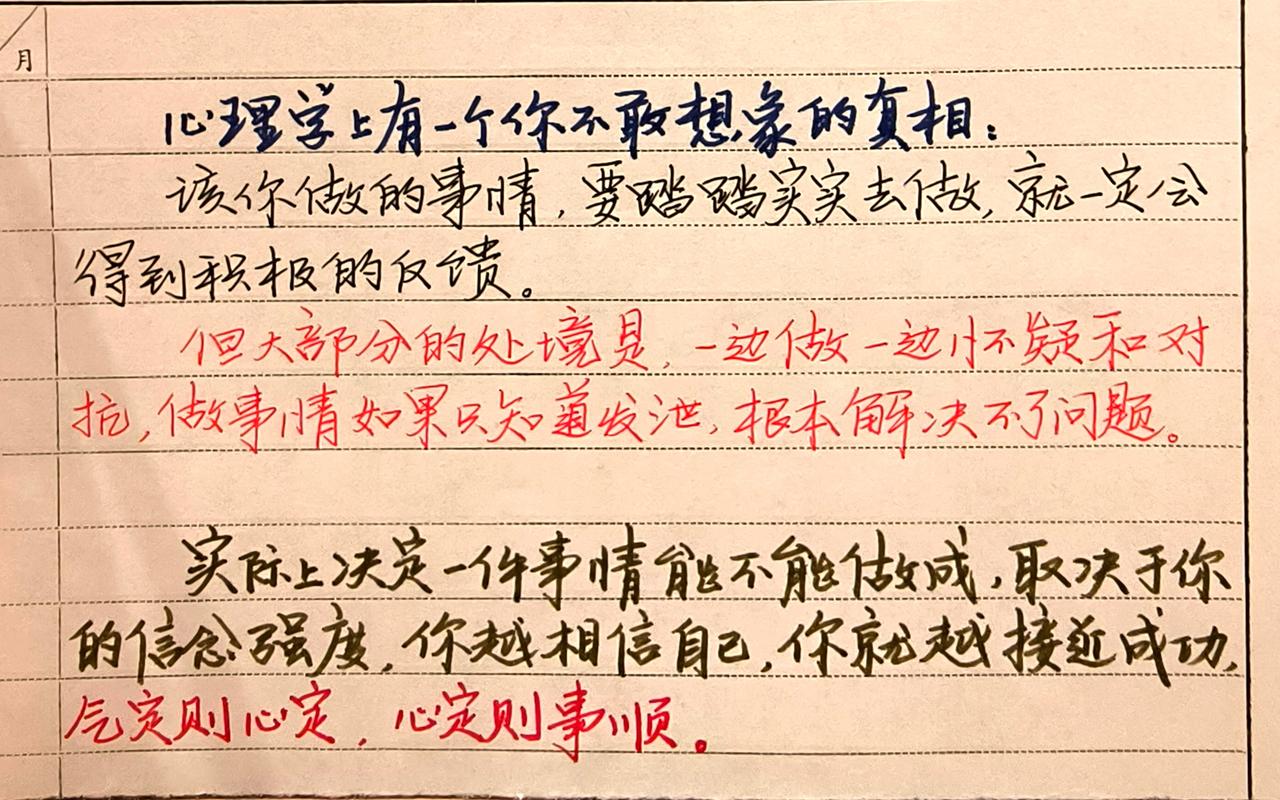 月
心理学上有一个你不敢想象的真相：
该你做的事情，要踏踏实实去做，就一定会
得到积极的反馈。
但大部分的处境是，一边做一边怀疑和对
抗，做事情如果只知道发泄，根本解决不了问题。
实际上决定一件事情能不能做成，取决于你
的信念强度，你越相信自己，你就越接近成功，
气定则心定，心定则事顺。